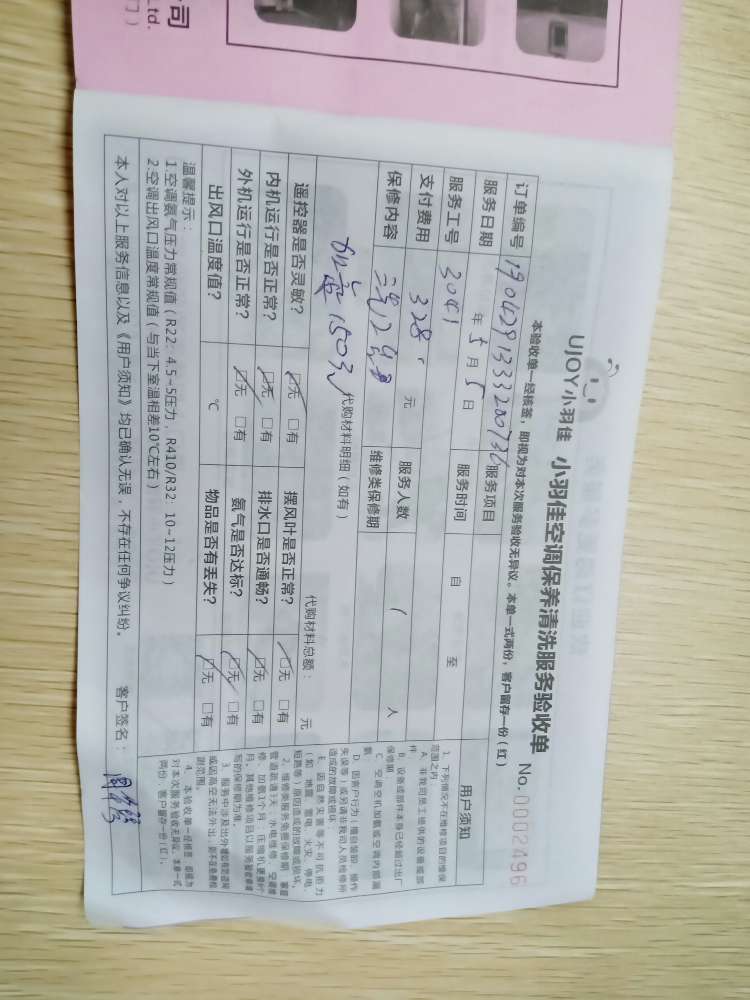 司
Ltd.
UJOY小羽佳 小羽佳空调保养清洗服务验收单 No.0002496
本验收单一经核签，即视为对本次服务验收无异议。本单一式两份，客户留存一份（红）
订单编号 服务项目
服务日期 年 5 月 5 日 服务时间 自 至
服务工号 3041
支付费用 328 元 服务人数 1 人
保修内容 维修类保修期
代购材料明细（如有） 代购材料总额： 元
遥控器是否灵敏？ 无 有 摆风叶是否正常？ 无 有
内机运行是否正常？ 无 有 排水口是否通畅？ 无 有
外机运行是否正常？ 无 有 氨气是否达标？ 无 有
出风口温度值？ ℃ 物品是否有丢失？ 无 有
温馨提示：
1.空调氨气压力常规值（R22：4.5~5压力，R410/R32：10-12压力）
2.空调出风口温度常规值（与当下室温相差10℃左右）
本人对以上服务信息以及《用户须知》均已确认无误，不存在任何争议纠纷。 客户签名：
用户须知
1、下列情况不在维修项目的维保
范围之内
A、非我司员工提供的设备或部
件
B、设备或部件本身已经超过出厂
保修期
D、因客户行为（擅自装卸、操作
失误等）或另请非我司人员维修所
造成的故障或损坏；
E、因自然灾害等不可抗拒力
（如：地震、雷电、火灾、停电、
短路等）原因造成的故障或损坏。
4、本验收单一经核签，即视为
对本次服务验收无异议。本单一式
两份，客户留存一份（红）。